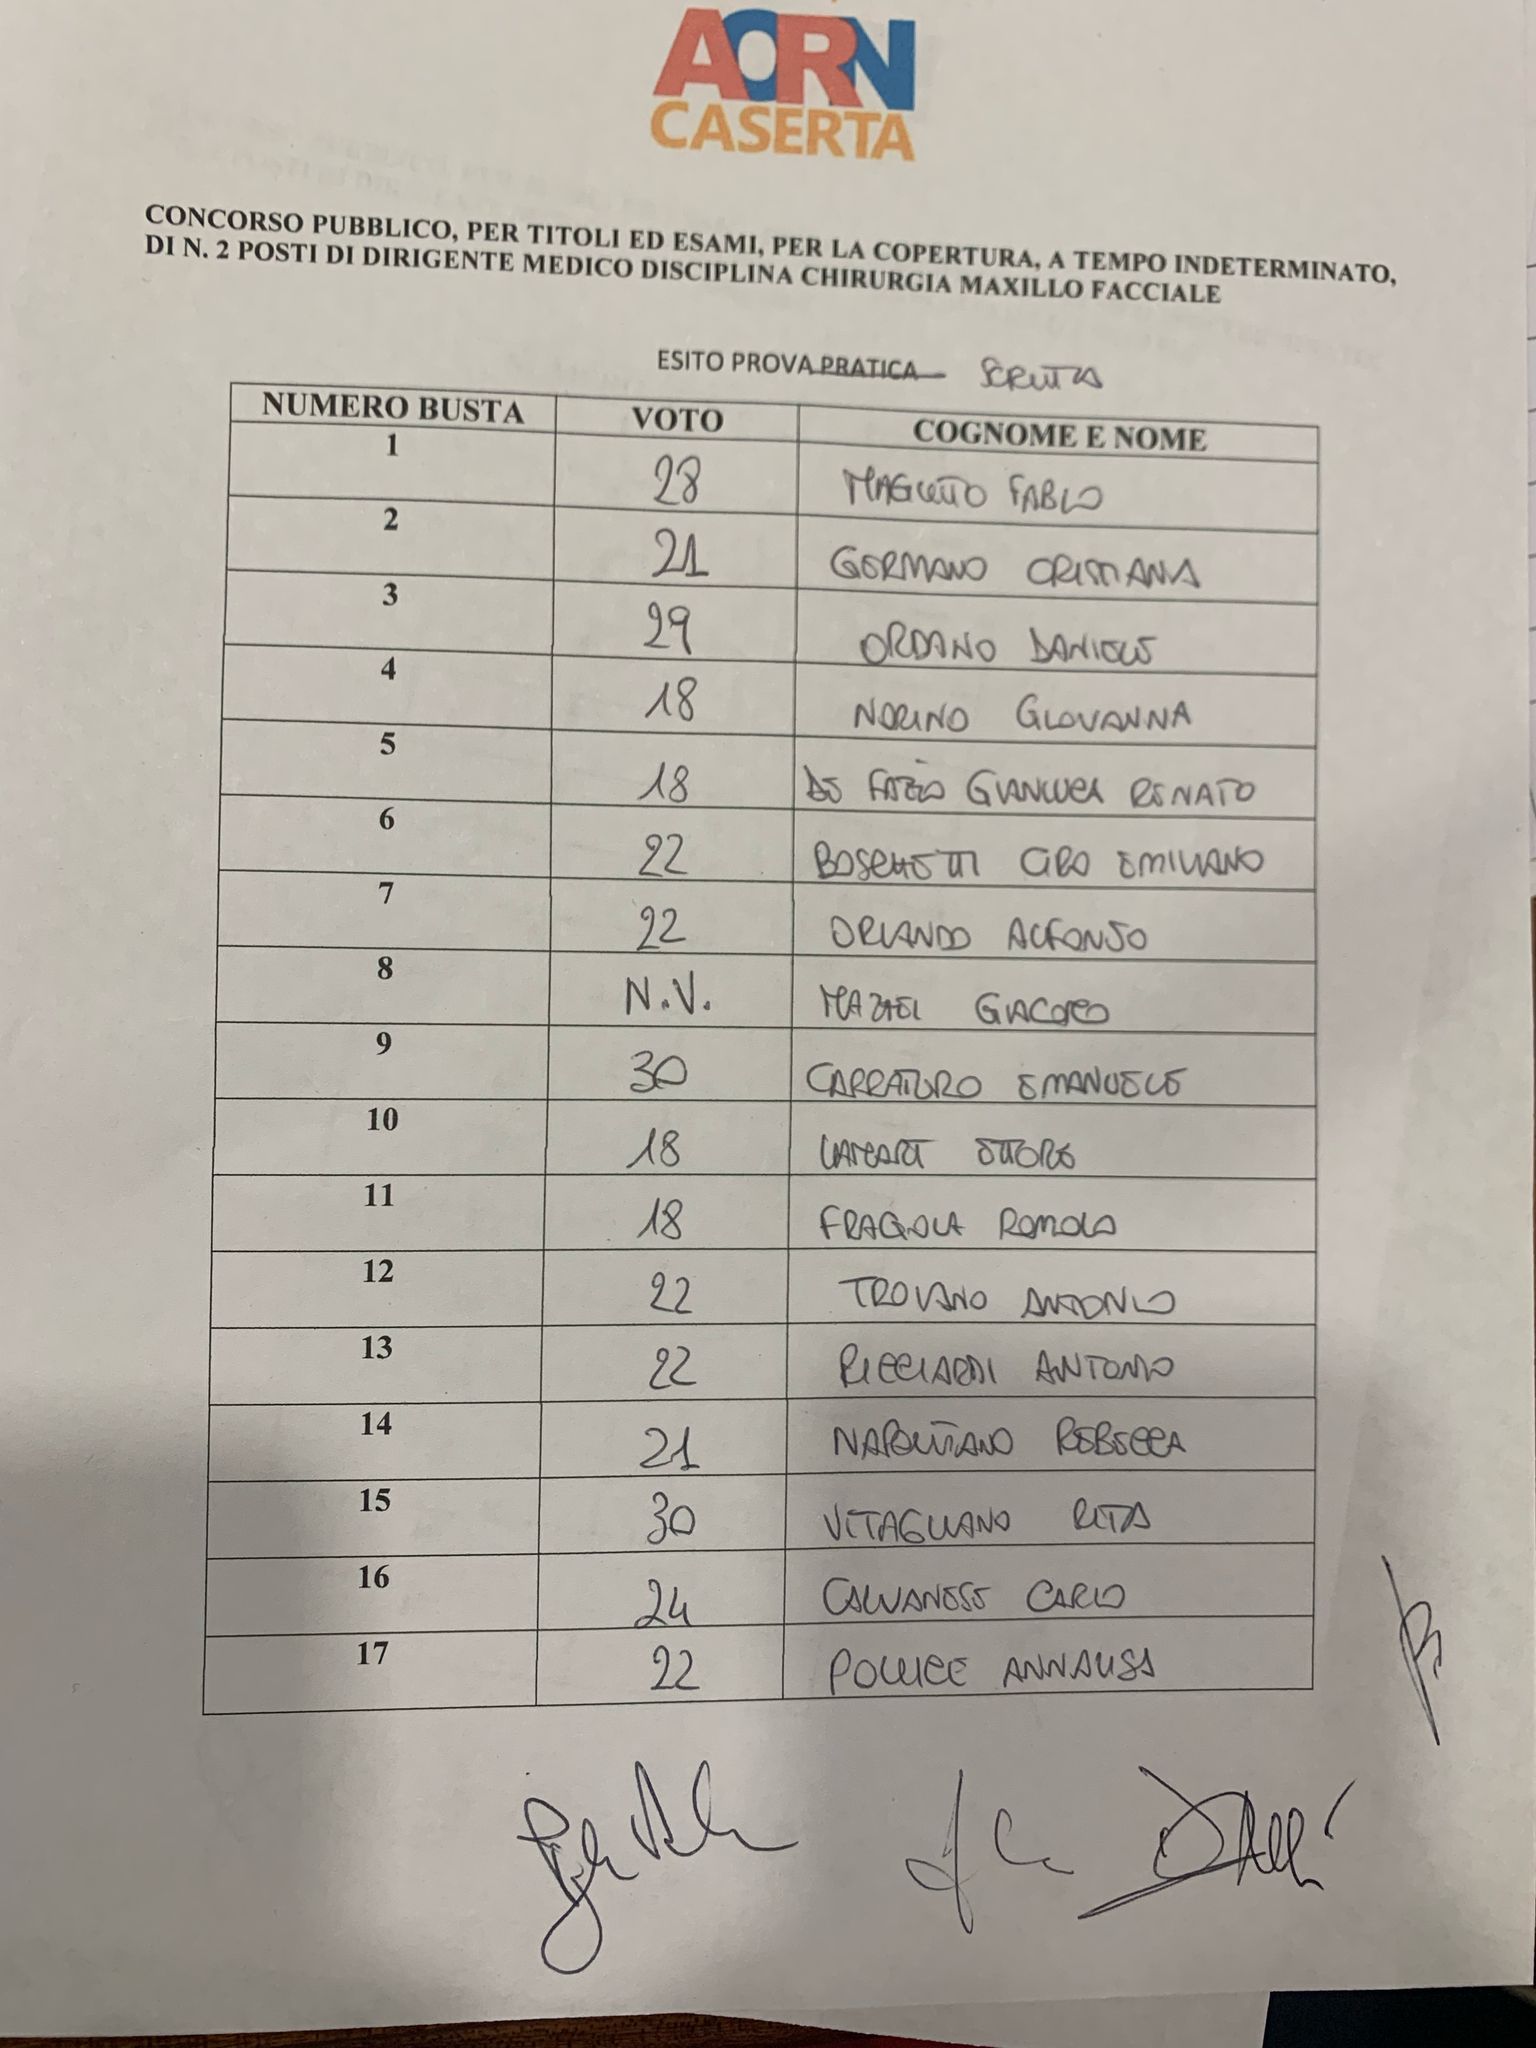 AORN
CASERTA
CONCORSO PUBBLICO, PER TITOLI ED ESAMI, PER LA COPERTURA, A TEMPO INDETERMINATO,
DI N. 2 POSTI DI DIRIGENTE MEDICO DISCIPLINA CHIRURGIA MAXILLO FACCIALE
ESITO PROVA PRATICA SCRITTA
NUMERO BUSTA VOTO COGNOME E NOME
1 28 MAGLITTO FABIO
2 21 GERMANO CRISTIANA
3 29 ORDANO DANIELE
4 18 NORINO GIOVANNA
5 18 DE FAZIO GIANLUCA RENATO
6 22 BOSCHETTI CIRO EMILIANO
7 22 ORLANDO ALFONSO
8 N.V. MAZZEI GIACOMO
9 30 CARRATURO EMANUELE
10 18 ETTORE
11 18 FRAGOLA ROMOLO
12 22 TROIANO ANTONIO
13 22 RICCIARDI ANTONIO
14 21 NAPOLITANO REBECCA
15 30 VITAGLIANO RITA
16 24 CALVANESE CARLO
17 22 POLLICE ANNALISA